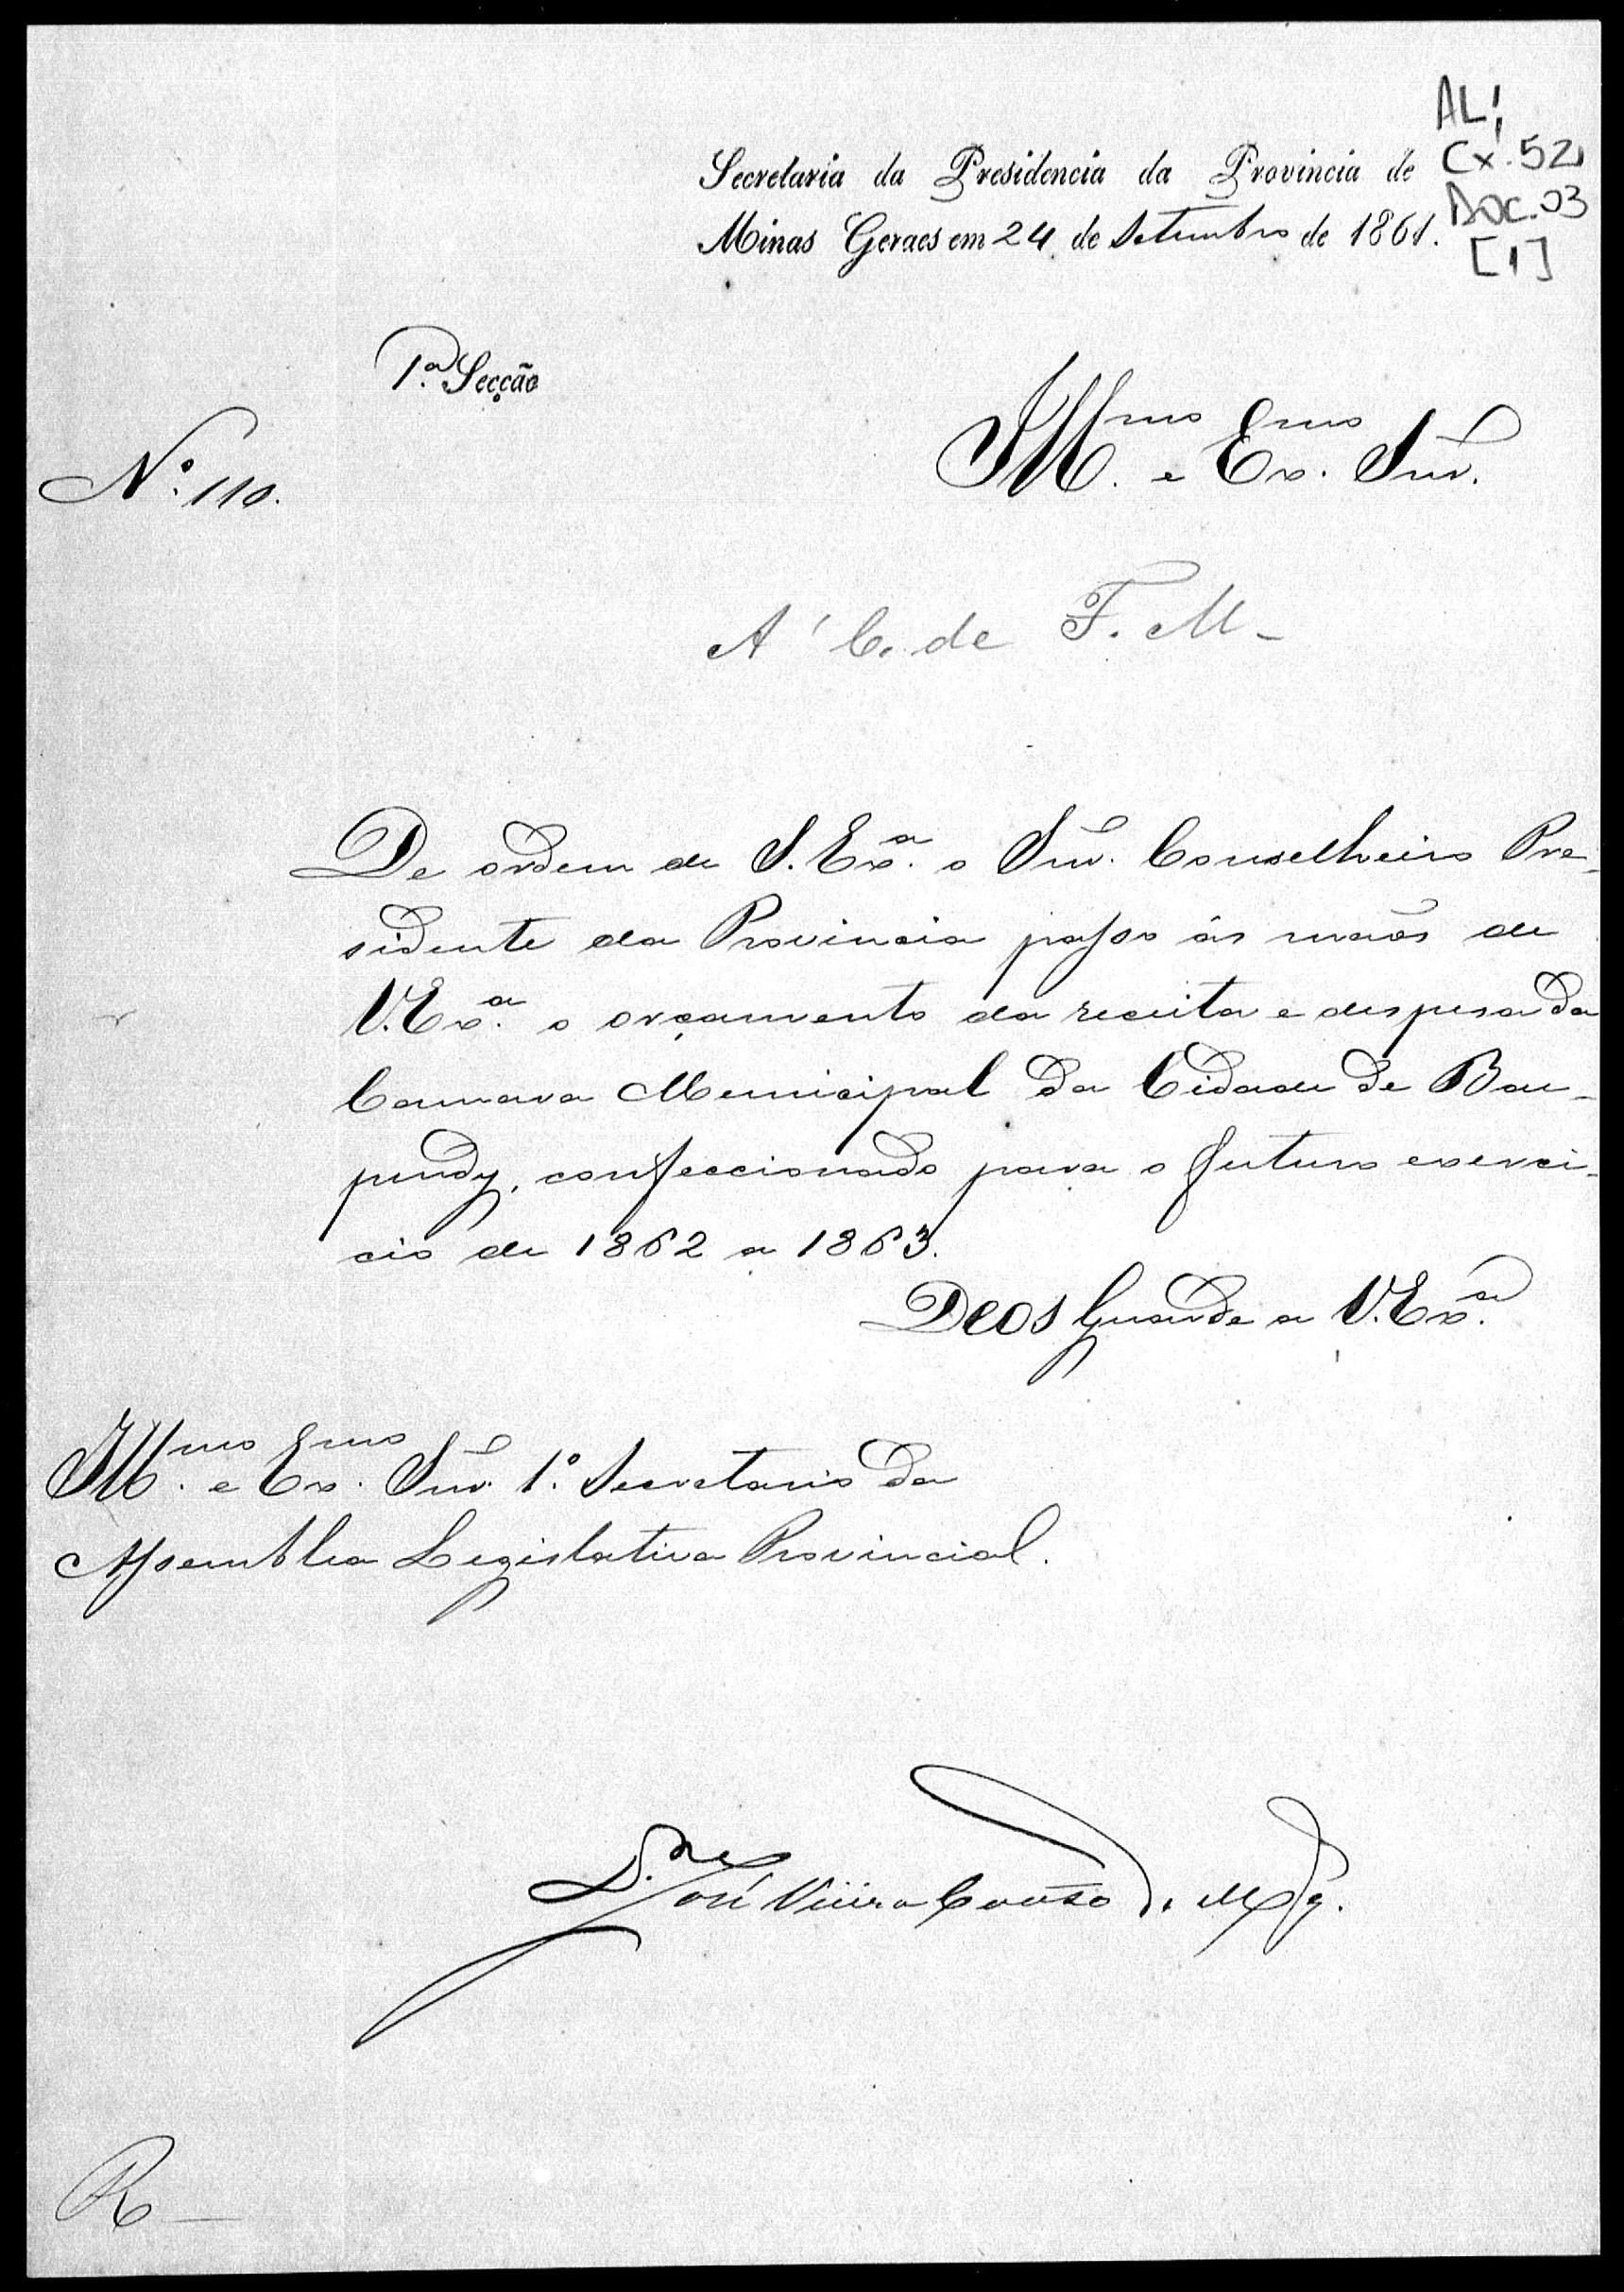 AL¹
Cx. 52
Doc. 03
[1]
Secretaria da Presidencia da Provincia de
Minas Geraes em 24 de Setembro de 1861.
1.ª Secção
N.º 110.
Ill.mo e Ex.mo Snr.
A' C. de F. M-
De ordem de S. Ex.ª o Snr. Conselheiro Pre-
sidente da Provincia passo ás mãos de
V. Ex.ª o orçamento da receita e despesa da
Camara Municipal da Cidade de Bae-
pendy, confeccionado para o futuro exerci-
cio de 1862 a 1863.
Deos Guarde a V. Ex.ª
Ill.mo e Ex.mo Snr. 1.º Secretario da
Assemblea Legislativa Provincial.
José Vieira Couto de Mg.
R